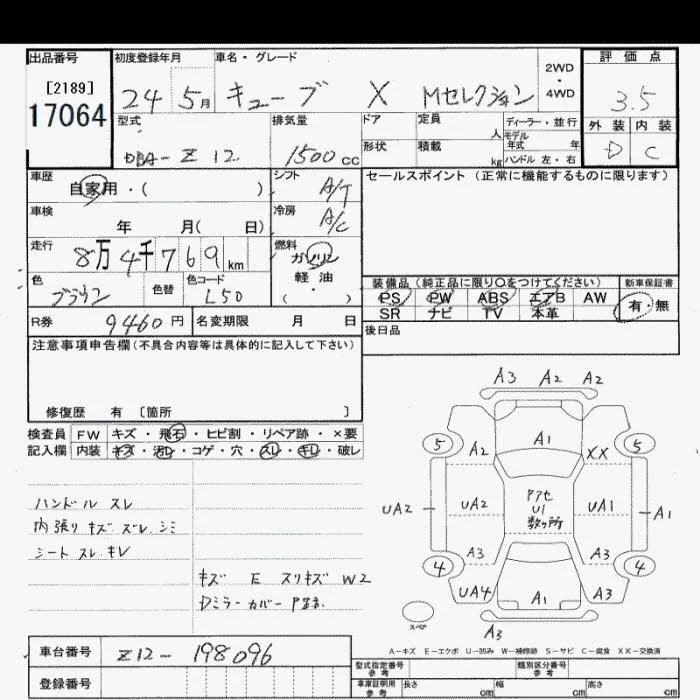 出品番号
[2189]
17064
初度登録年月
24 5月
車名・グレード
キューブ X Mセレクション
2WD
・
4WD
評価点
3.5
外装 内装
D C
型式
DBA-Z12
排気量
1500cc
ドア
形状
定員 人
積載 kg
ディーラー・並行
モデル年式 年
ハンドル 左・右
車歴
自家用・( )
シフト
A/T
車検
年 月( 日)
冷房
A/C
走行
8万4千769km
燃料
ガソリン
軽油
( )
色
ブラウン
色替
色コード
L50
R券 9460円
名変期限 月 日
セールスポイント (正常に機能するものに限ります)
装備品(純正品に限り〇をつけてください)
PS PW ABS エアB AW
SR ナビ TV 本革
新車保証書
有・無
後日品
注意事項申告欄(不具合内容等は具体的に記入して下さい)
修復歴 有 [箇所 ]
検査員
記入欄
FW キズ・飛石・ヒビ割・リペア跡・×要
内装 キズ・汚レ・コゲ・穴・スレ・キレ・破レ
ハンドル スレ
内張り キズ ズレ シミ
シート スレ キレ
キズ E スリキズ W2
Dミラーカバー
A3 A2 A2
5 A2 A1 XX 5
UA2 UA2 アセ U1 数ヶ所 UA1 A1
4 A3 A3 4
UA4 A1 A3
スペア
A3
A-キズ E-エクボ U-凹み W-補修跡 S-サビ C-腐食 XX-交換済
車台番号 Z12-198096
登録番号
型式指定番号
参考
類別区分番号
参考
車庫証明用
参考
長さ cm 幅 cm 高さ cm